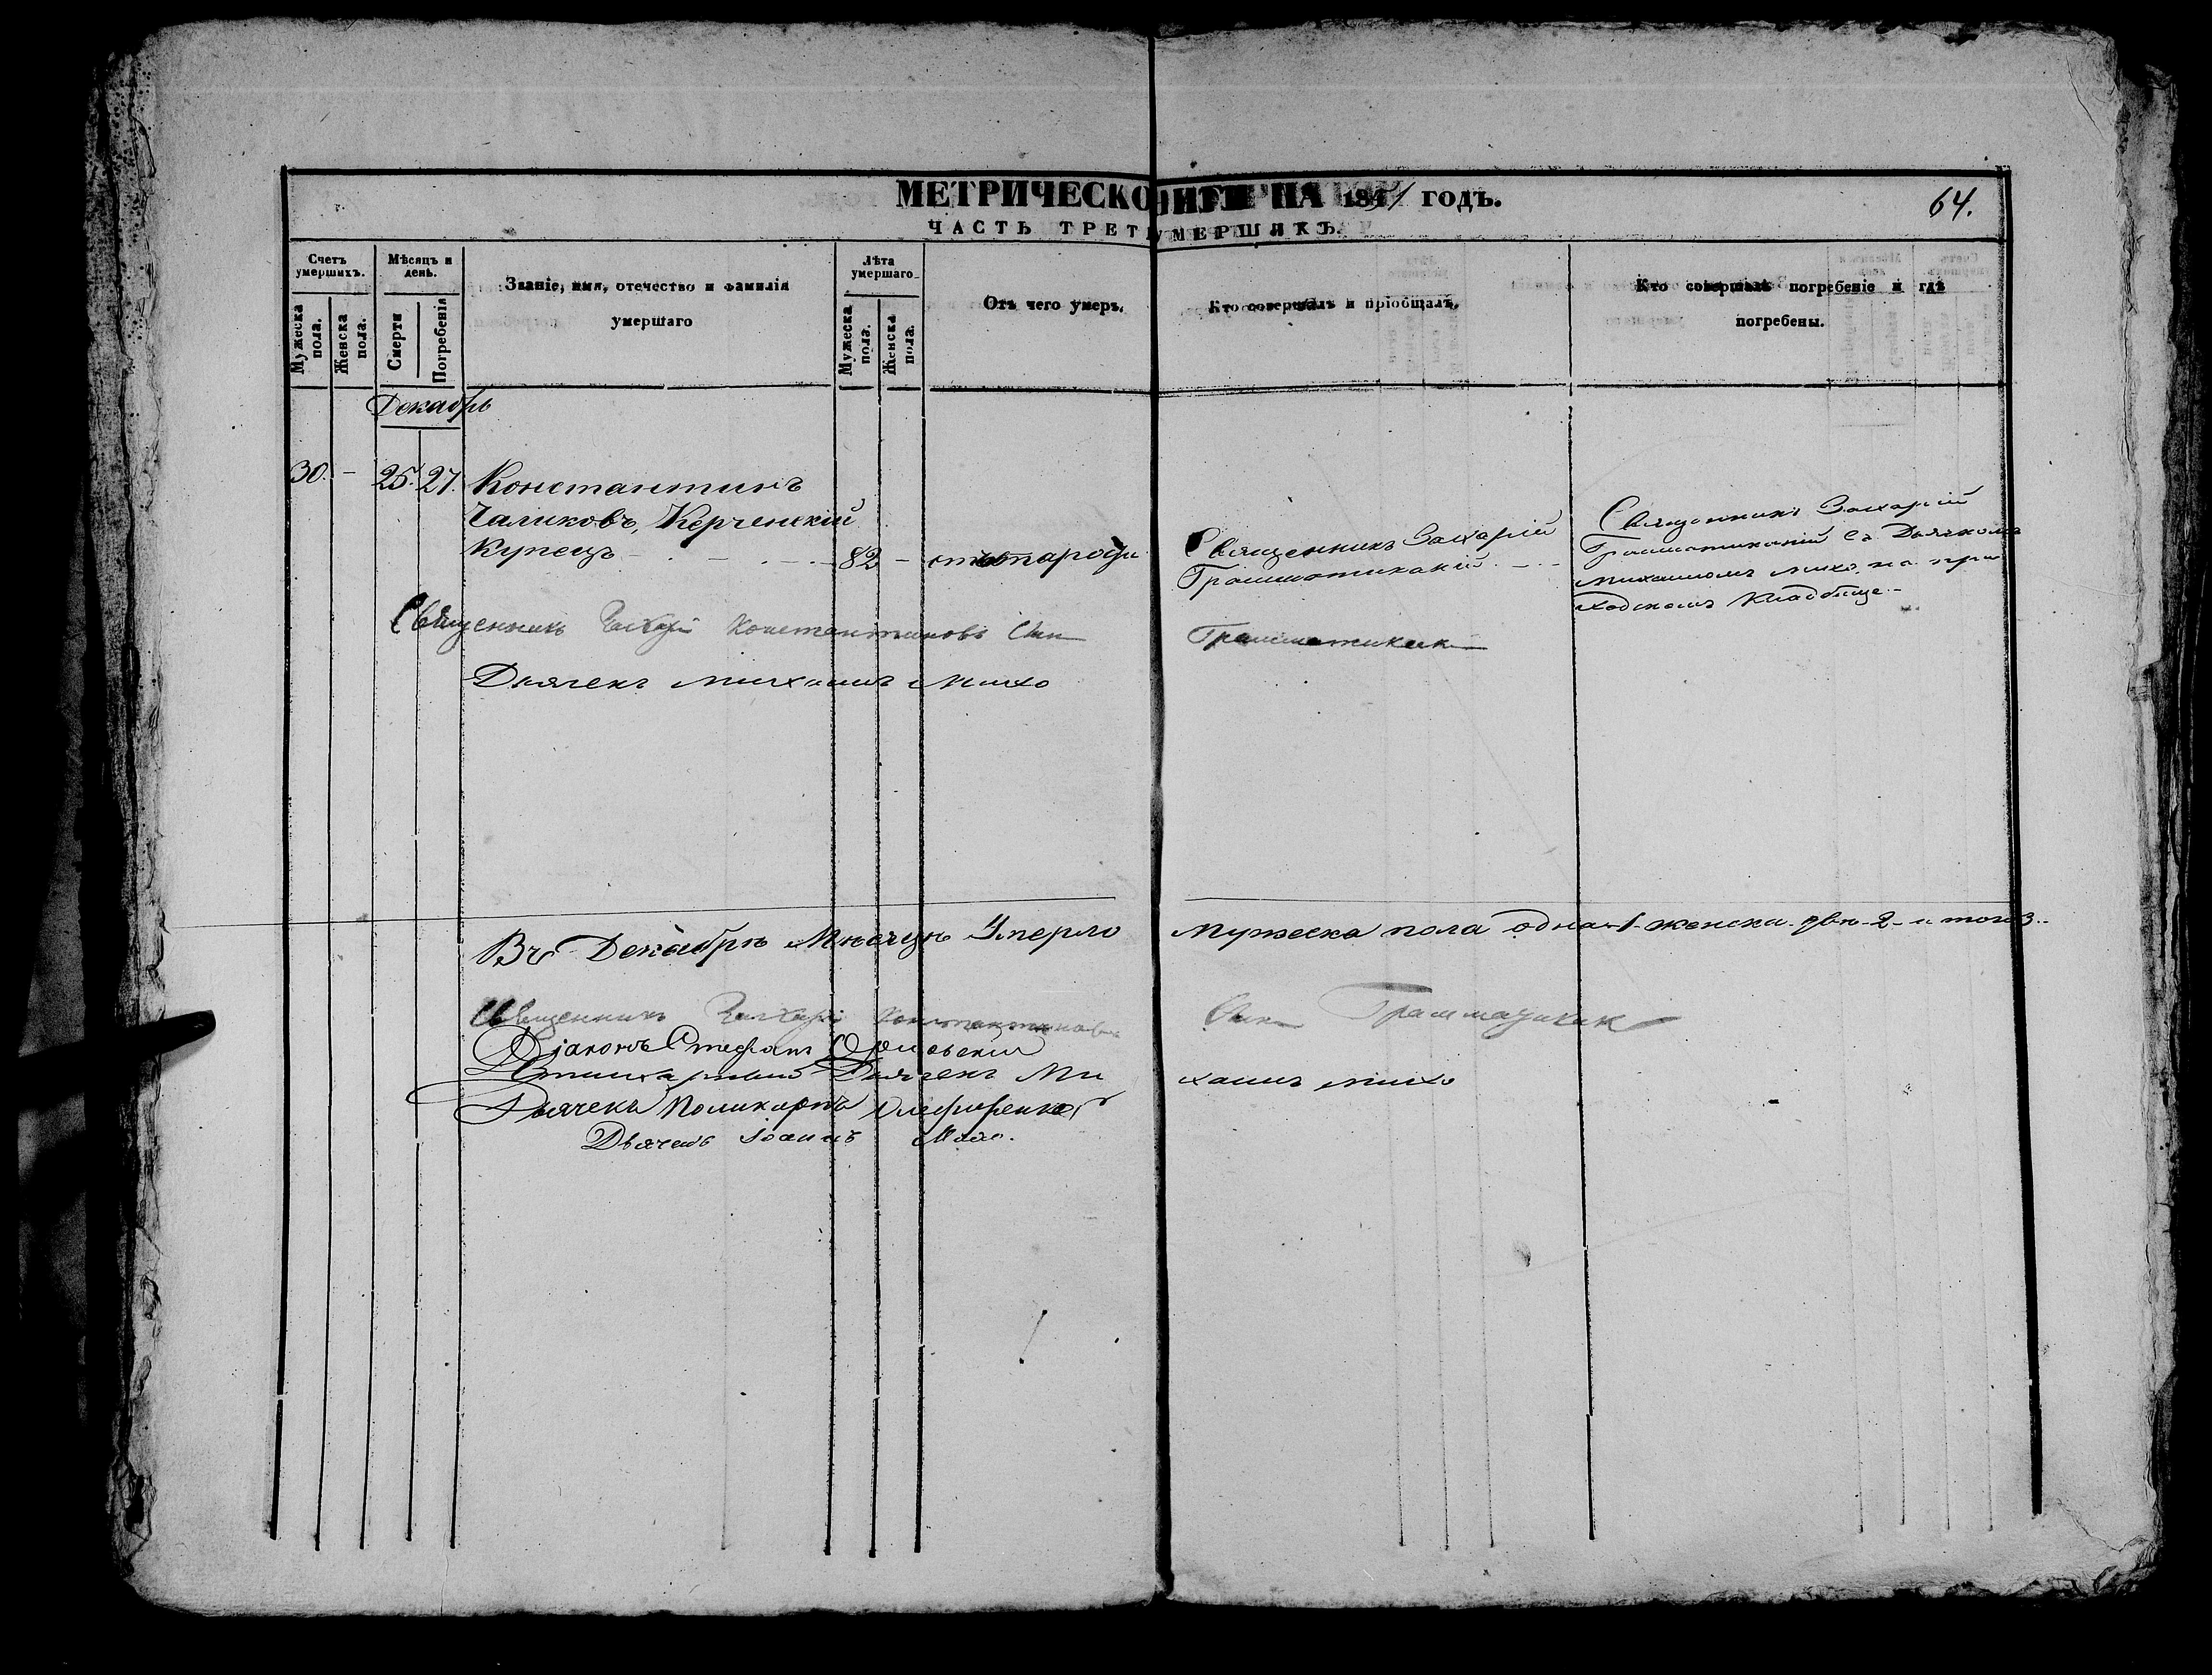 МЕТРИЧЕСКО НА 1851 ГОДЪ.
64.
ЧАСТЬ ТРЕТ УМЕРШИХЪ.
Счетъ умершихъ.
Мужеска пола.
Женска пола.
Мѣсяцъ и день.
Смерти
Погребенія
Званіе, имя, отечество и фамилія
умершаго
Лѣта умершаго
Мужеска пола.
Женска пола.
Отъ чего умеръ.
Кто совершалъ и пріобщалъ.
Кто совершалъ погребеніе и гдѣ
погребены.
Декабрь
30. - 25. 27. Константинъ
Чаликовъ, Керченскій
Купецъ - 82 - отъ старости
Священникъ Захарій
Грамматикакій
Священникъ Захарій
Грамматикакій съ Дьячкомъ
Михаиломъ Михо на при
ходскомъ Кладбище
Священникъ Захарій Константиновъ Сын Грамматикаки
Дьячекъ Михаилъ Михо
Въ Декабрѣ Мѣсяцѣ Умерло Мужеска пола одна 1 женска двѣ 2 и того 3
Священникъ Захарій Константиновъ Сын Грамматикаки
Діаконъ Стефанъ
Дьячекъ Михаилъ Михо
Дьячекъ Поликарпъ
Дьячекъ Іоаннъ